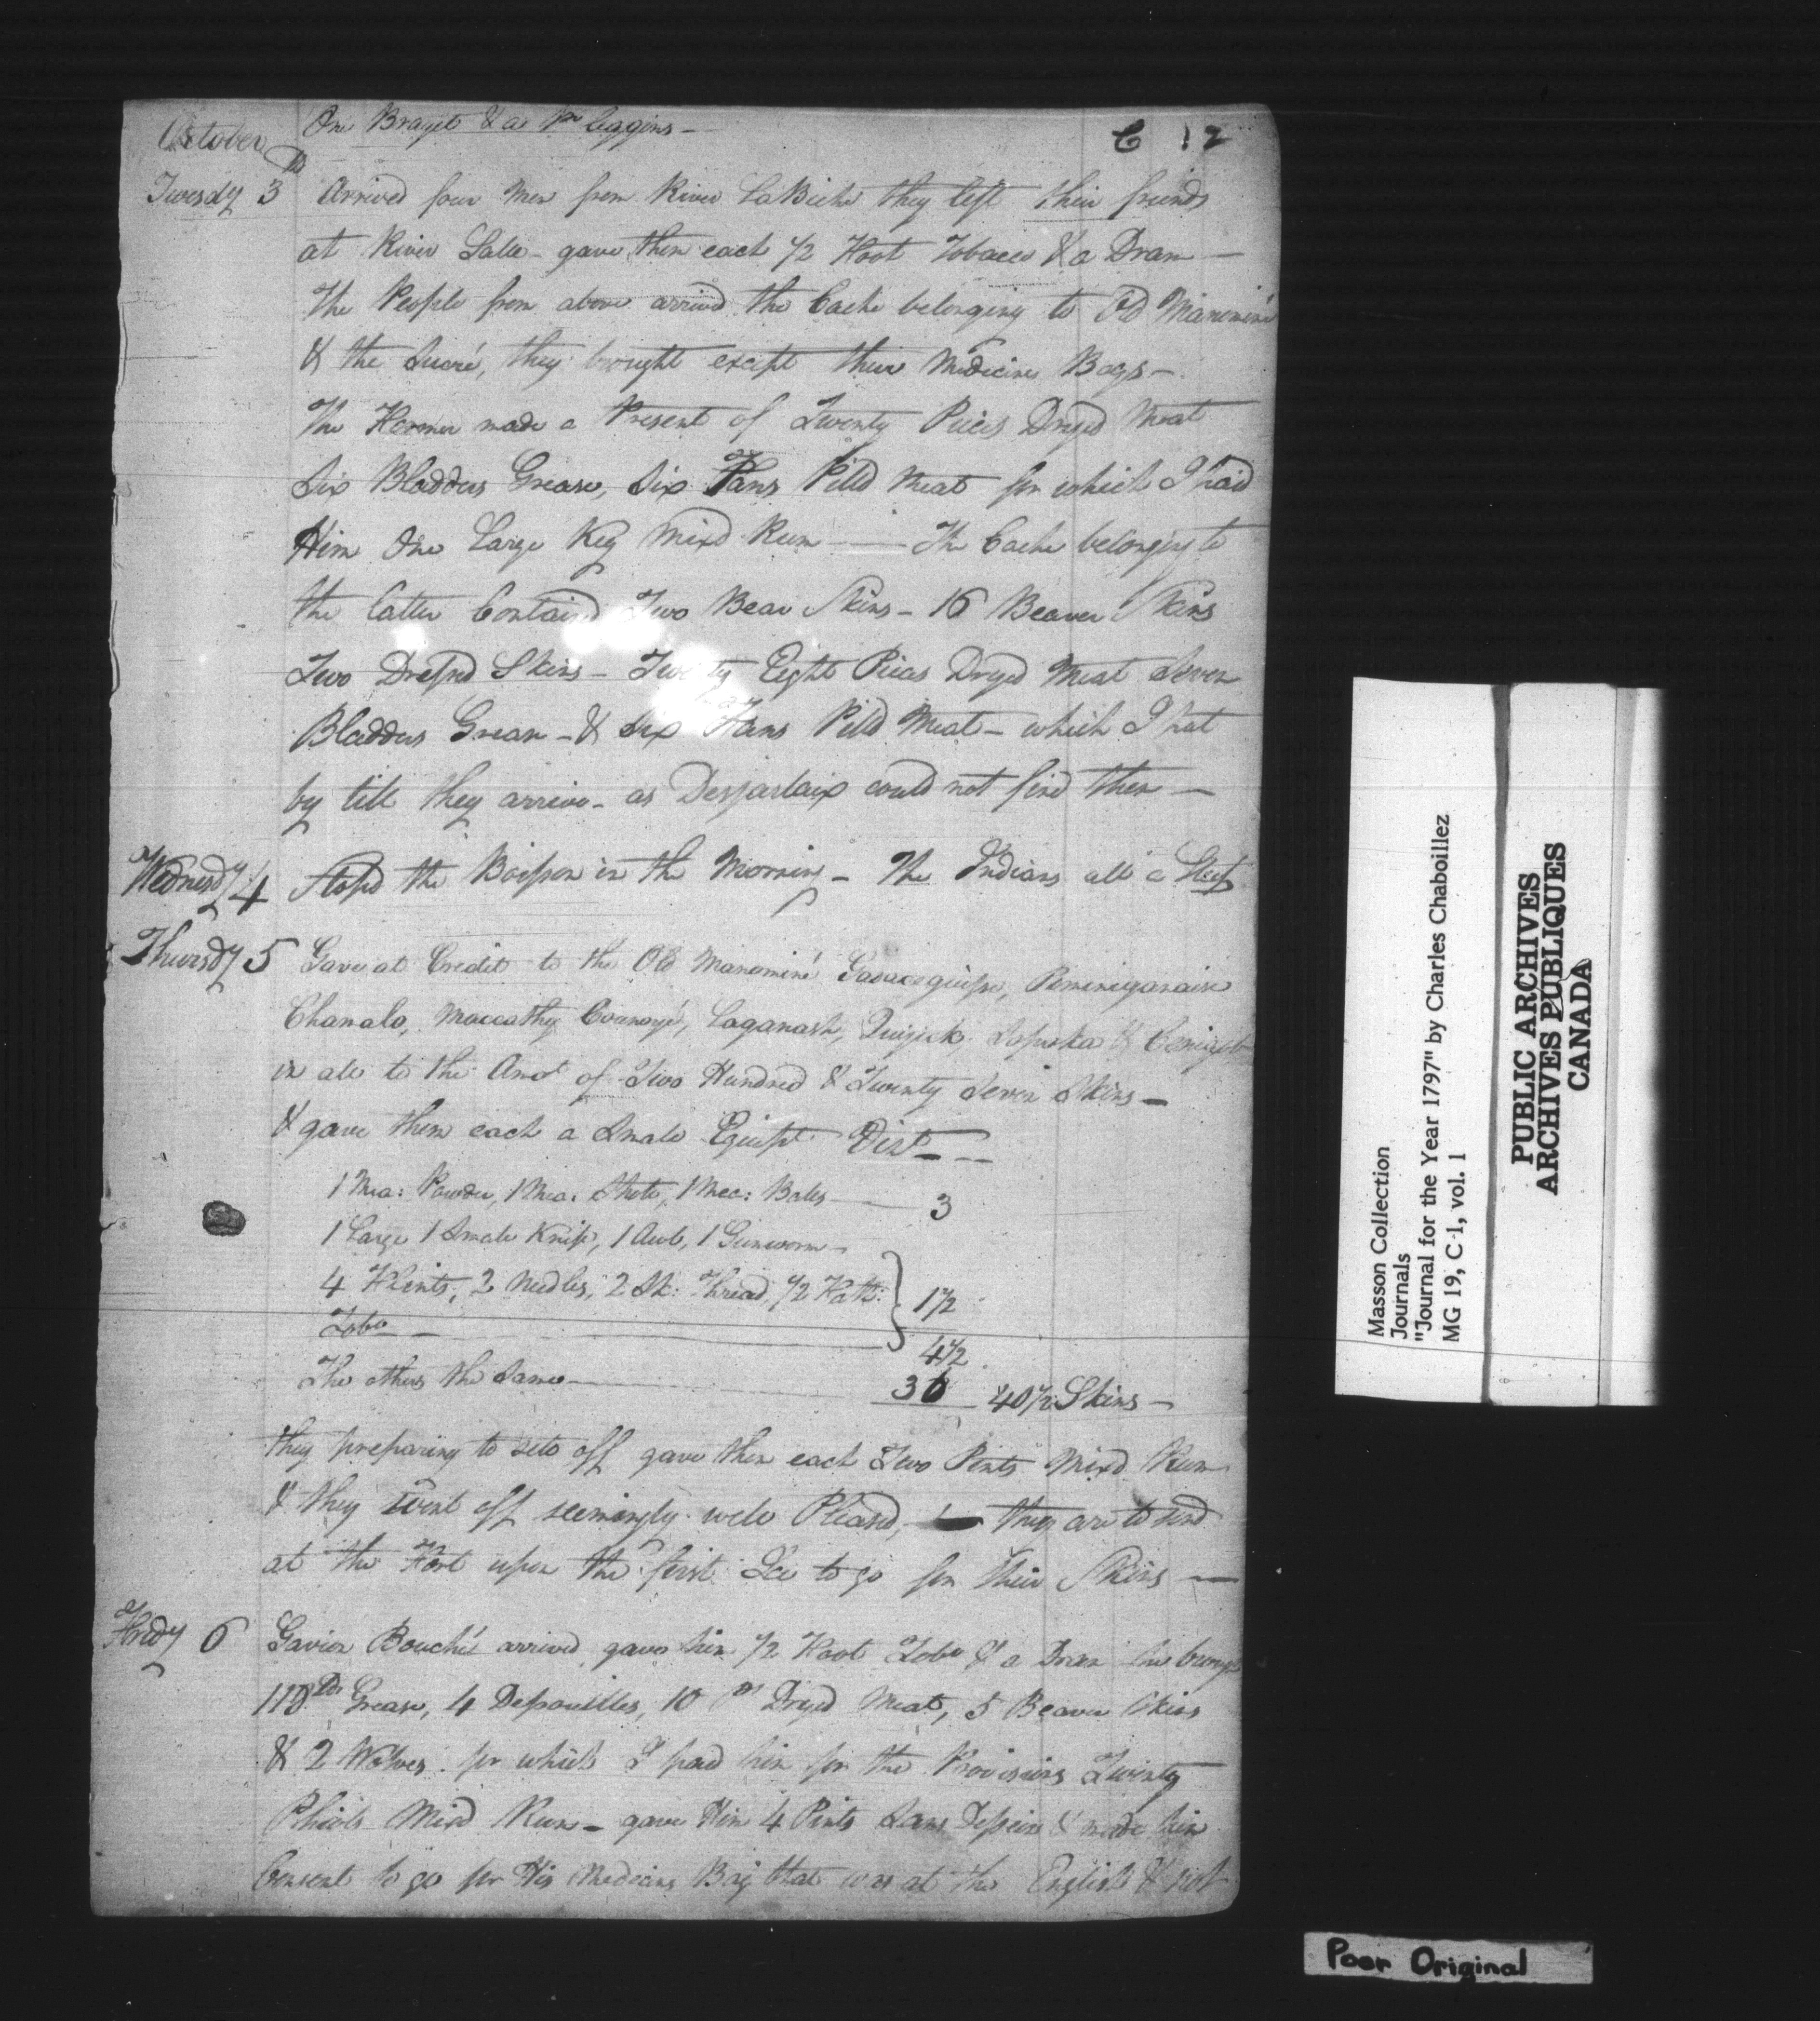 October One Brayet & a Pr Leggins —
C 12
Tuesdy 3th Arrived four Men from River LaBiche they left their friends
at River Salle - gave them each 1/2 Foot Tobacco & a Dram —
The People from above arrived the Cache belonging to Old Manominé
& the Sucré, they brought except their Medicine Bags —
The Former made a Present of Twenty Pieces Dryed Meat
Six Bladders Grease, Six Fans Pilld Meat for which I paid
Him One Large Keg Mixd Rum —— The Cache belonging to
the latter Containd Two Bear Skins — 16 Beaver Skins
Two Dressed Skins — Twenty Eight Pieces Dryed Meat Seven
Bladders Grease — & Six Fans Pilld Meat — which I put
by till they arrive — as Desjarlaix could not find them —
Wednesdy 4 Stopd the Boisson in the Morning — The Indians all a Sleep
Thursdy 5 Gave at Credit to the Old Manominé
Chanalo, Maccathy Laganash, Quizick, &
in all to the Amot of Two Hundred & Twenty Seven Skins —
& gave them each a Small Equipt Vizt —
1 Mea: Powder, 1 Mea: Shott, 1 Mea: Balls —— 3
1 Large 1 Small Knife, 1 Awl, 1 Gunworm —
4 Flints, 2 Needles, 2 Sk: Thread, 1/2 Fath: } 1 1/2
Tobo —
4 1/2
The others the Same —— 36 40 1/2 Skins —
they preparing to sett off gave them each Two Pints Mixd Rum
& they went off seemingly well Pleased, — they are to send
at the Fort upon the first Ice to go for their Skins —
Fridy 6 Gavion Bouché arrived gave him 1/2 Foot Tobo & a Dram he brougt
110 lbs Grease, 4 Depouilles, 10 ps Dryed Meat, 5 Beaver Skins
& 2 Wolves for which I paid him for the Provisions Twenty
Phiols Mixd Rum — gave Him 4 Pints Sans Dessein & made him
Consent to go for His Medicine Bag that was at the English & not
Masson Collection
Journals
"Journal for the Year 1797" by Charles Chaboillez
MG 19, C-1, vol. 1
PUBLIC ARCHIVES
ARCHIVES PUBLIQUES
CANADA
Poor Original